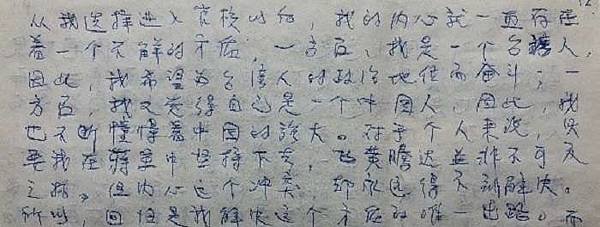 从我选择进入官校以后，我的内心就一直存在
着一个不解的矛盾，一方面，我是一个台湾人，
因此，我希望为台湾人的政治地位而奋斗；一
方面，我又觉得自己是一个中国人，因此，我
也不断憧憬着中国的强大。对于个人来说，只
要我在蒋军中坚持下去，飞黄腾达并非不可及
之指。但内心这个冲突，却永远得不到解决。
所以，回归是我解决这个矛盾的唯一出路。而